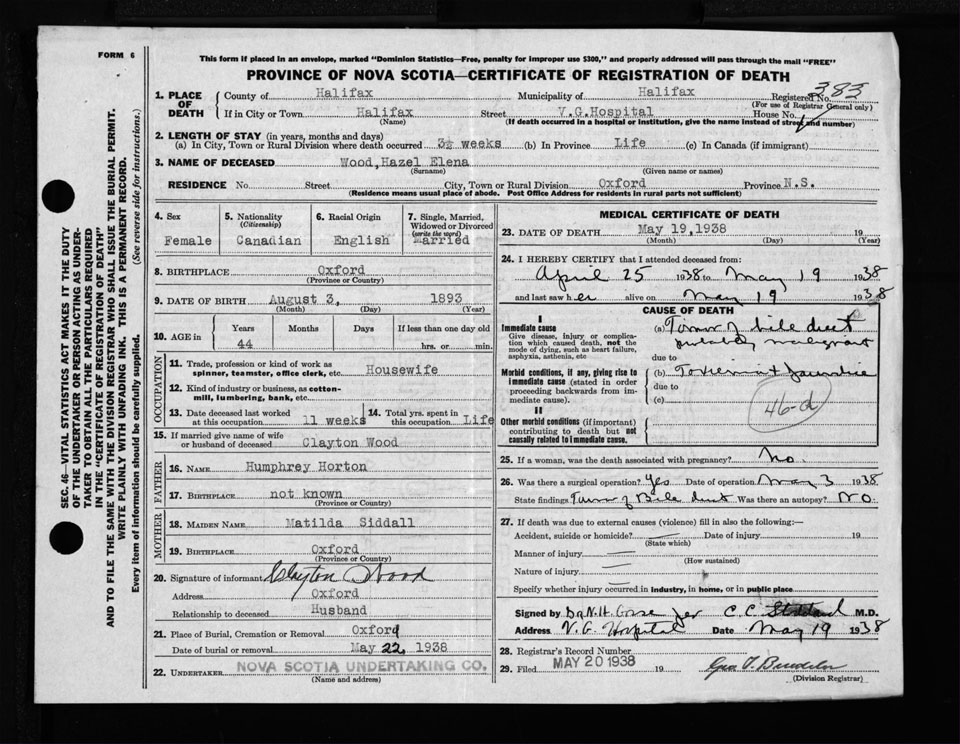 FORM 6
This form if placed in an envelope, marked "Dominion Statistics—Free, penalty for improper use $300," and properly addressed will pass through the mail "FREE"
PROVINCE OF NOVA SCOTIA—CERTIFICATE OF REGISTRATION OF DEATH
383
1. PLACE OF DEATH County of Halifax Municipality of Halifax Registered No.
(For use of Registrar General only)
If in City or Town Halifax Street V.G.Hospital House No.
(Name) (If death occurred in a hospital or institution, give the name instead of street and number)
2. LENGTH OF STAY (in years, months and days)
(a) In City, Town or Rural Division where death occurred 3½ weeks (b) In Province Life (c) In Canada (if immigrant)
3. NAME OF DECEASED Wood, Hazel Elena
(Surname) (Given name or names)
RESIDENCE No. Street City, Town or Rural Division Oxford Province N.S.
(Residence means usual place of abode. Post Office Address for residents in rural parts not sufficient)
4. Sex Female
5. Nationality (Citizenship) Canadian
6. Racial Origin English
7. Single, Married, Widowed or Divorced (write the word) Married
8. BIRTHPLACE Oxford
(Province or Country)
9. DATE OF BIRTH August 3, 1893
(Month) (Day) (Year)
10. AGE in Years Months Days If less than one day old
44 hrs. or min.
OCCUPATION
11. Trade, profession or kind of work as spinner, teamster, office clerk, etc. Housewife
12. Kind of industry or business, as cotton-mill, lumbering, bank, etc.
13. Date deceased last worked at this occupation 11 weeks
14. Total yrs. spent in this occupation Life
15. If married give name of wife or husband of deceased Clayton Wood
FATHER
16. NAME Humphrey Horton
17. BIRTHPLACE not known
(Province or Country)
MOTHER
18. MAIDEN NAME Matilda Siddall
19. BIRTHPLACE Oxford
(Province or Country)
20. Signature of informant Clayton Wood
Address Oxford
Relationship to deceased Husband
21. Place of Burial, Cremation or Removal Oxford
Date of burial or removal May 22, 1938
22. UNDERTAKER NOVA SCOTIA UNDERTAKING CO.
(Name and address)
MEDICAL CERTIFICATE OF DEATH
23. DATE OF DEATH May 19, 1938 19
(Month) (Day) (Year)
24. I HEREBY CERTIFY that I attended deceased from:
April 25 1938 to May 19 1938
and last saw her alive on May 19 1938
CAUSE OF DEATH
I
Immediate cause
Give disease, injury or complication which caused death, not the mode of dying, such as heart failure, asphyxia, asthenia, etc
(a) Tumor of bile duct
probably malignant
due to
Morbid conditions, if any, giving rise to immediate cause (stated in order proceeding backwards from immediate cause).
(b) jaundice
due to
(c)
46-a
II
Other morbid conditions (if important) contributing to death but not causally related to immediate cause.
25. If a woman, was the death associated with pregnancy? No.
26. Was there a surgical operation? Yes Date of operation May 3 1938
State findings Tumor of Bile duct Was there an autopsy? No.
27. If death was due to external causes (violence) fill in also the following:—
Accident, suicide or homicide? Date of injury 19
(State which)
Manner of injury
(How sustained)
Nature of injury
Specify whether injury occurred in industry, in home, or in public place
Signed by Dr. N.H. Gosse per C.C. Stoddard M.D.
Address V.G. Hospital Date May 19 1938
28. Registrar's Record Number
29. Filed MAY 20 1938 19
(Division Registrar)
SEC. 46—VITAL STATISTICS ACT MAKES IT THE DUTY
OF THE UNDERTAKER OR PERSON ACTING AS UNDER-
TAKER TO OBTAIN ALL THE PARTICULARS REQUIRED
IN THE "CERTIFICATE OF REGISTRATION OF DEATH"
AND TO FILE THE SAME WITH THE DIVISION REGISTRAR WHO SHALL ISSUE THE BURIAL PERMIT.
WRITE PLAINLY WITH UNFADING INK. THIS IS A PERMANENT RECORD.
Every item of information should be carefully supplied. (See reverse side for instructions.)